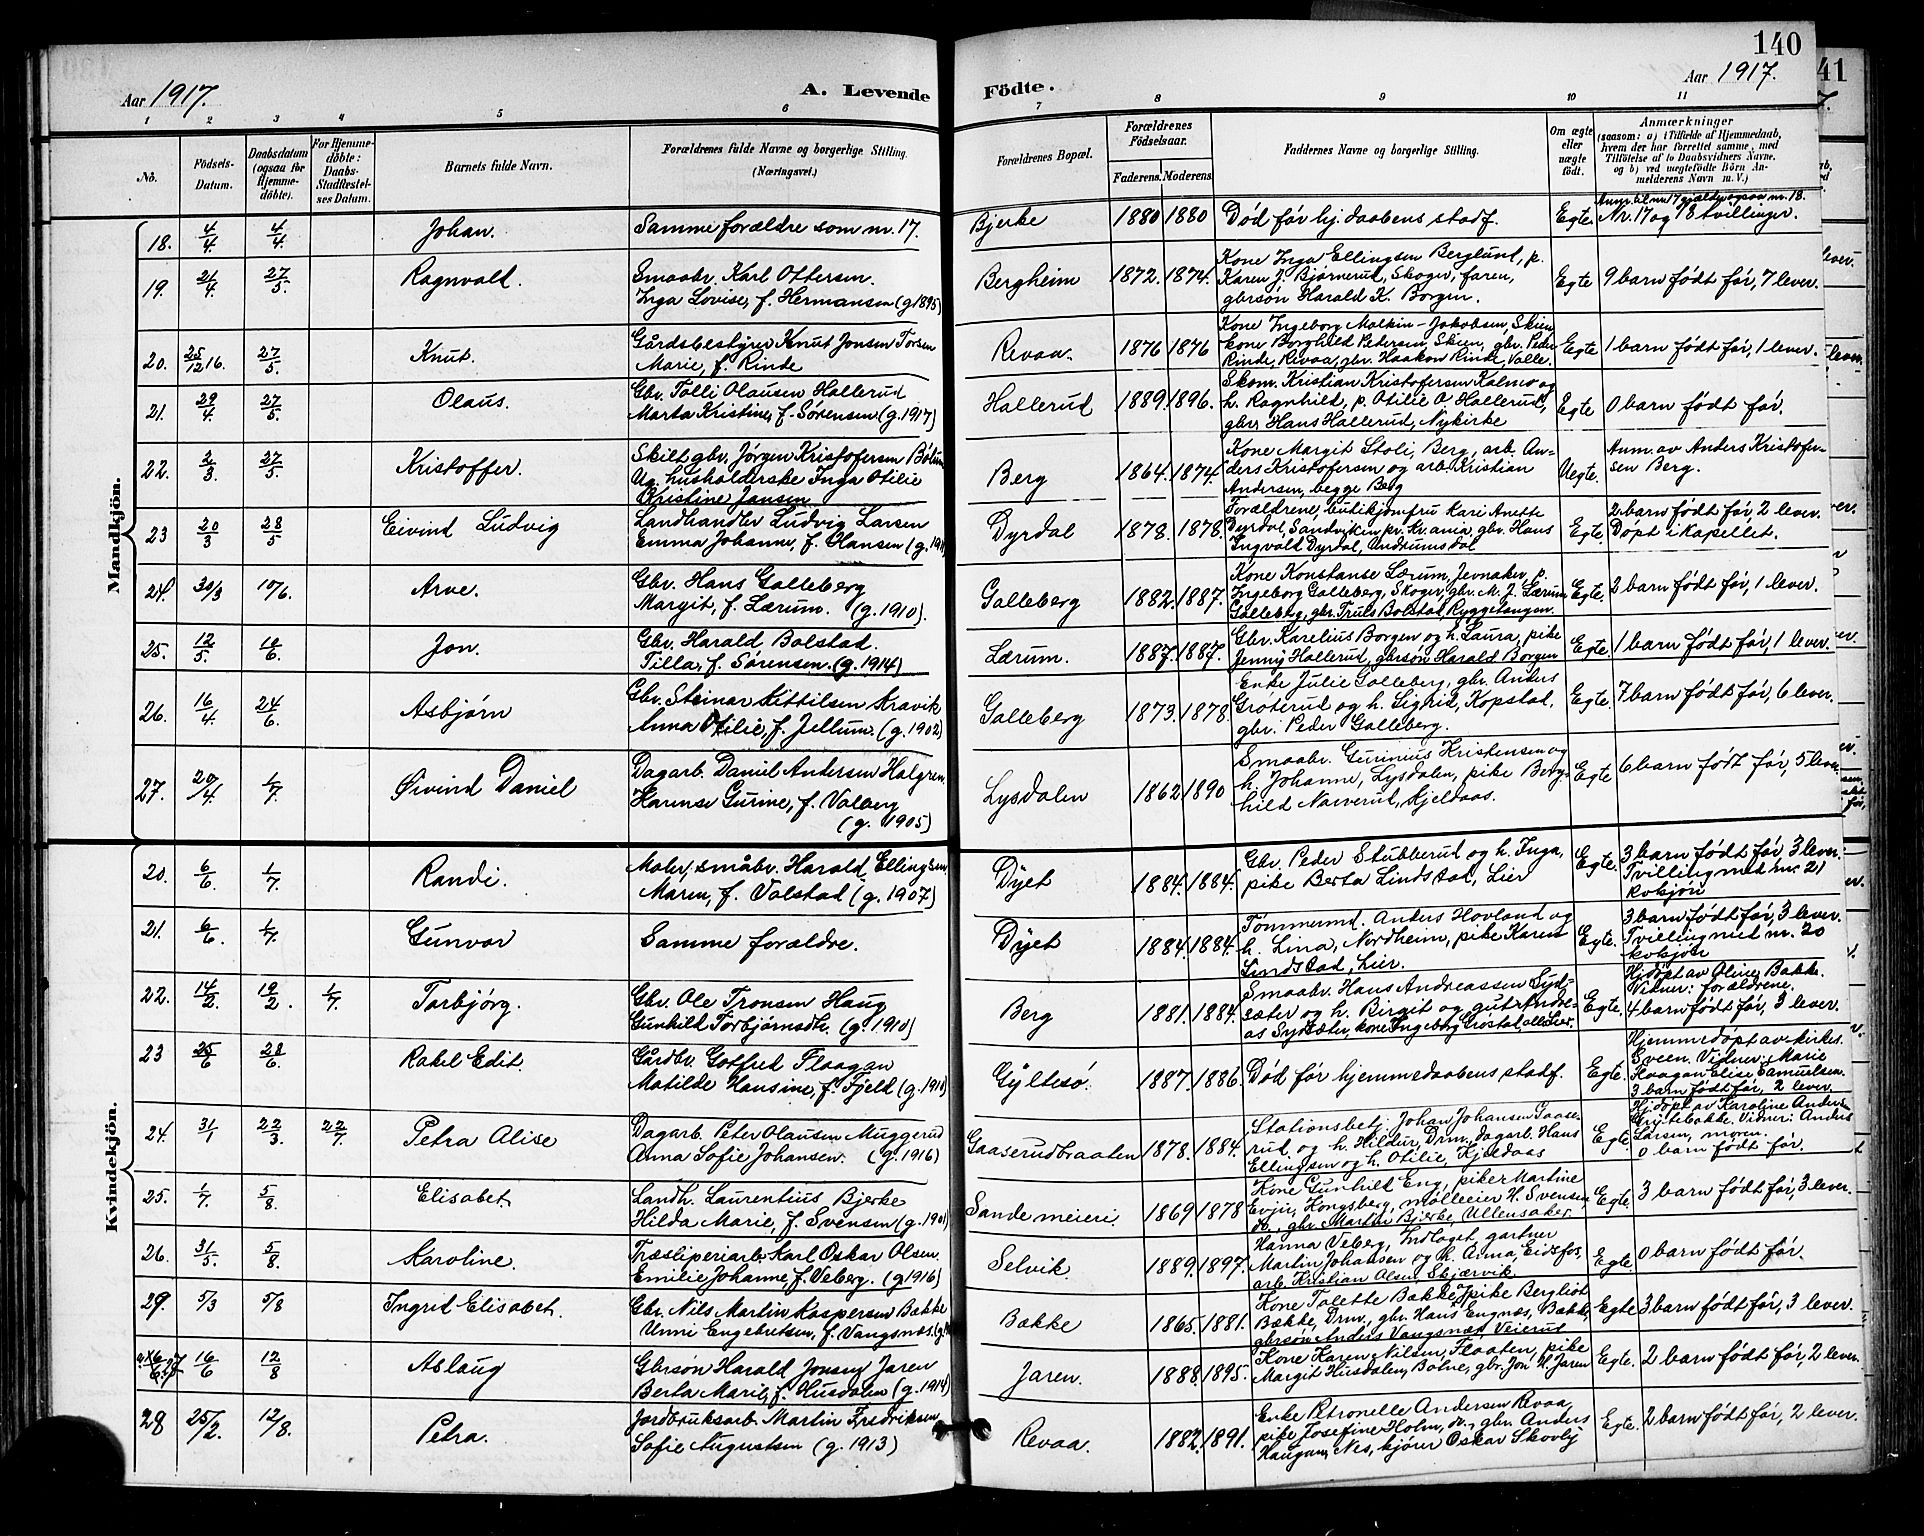 140
Aar 1917.
A. Levende
Födte.
Aar 1917.
41
1 2 3 4 5 6 7 8 9 10 11
No.
Födsels-
Datum.
Daabsdatum
(ogsaa for
Hjemme-
døbte).
For Hjemme-
døbte:
Daabs-
Stadfæstel-
ses Datum.
Barnets fulde Navn.
Forældrenes fulde Navne og borgerlige Stilling.
(Næringsvei.)
Forældrenes Bopæl.
Forældrenes
Födselsaar.
Faderens. Moderens.
Faddernes Navne og borgerlige Stilling.
Om ægte
eller
uægte
födt.
Anmærkninger
(saasom: a) i Tilfælde af Hjemmedaab,
hvem der har forrettet samme, med
Tilföielse af to Daabsvidners Navne,
og b) ved uægtefödte Börn An-
melderens Navn m. V.)
Mandkjön.
18. 4/4 4/4 Johan. Samme forældre som nr. 17. Bjerke 1880 1880 Død før hj.daabens stadf. Egte.
Anm. til nr 17 gjælder ogsaa nr. 18.
Nr. 17 og 18 tvillinger.
19. 21/4 27/5 Ragnvald. Smaabr. Karl Ottersen.
Inga Lovise, f. Hermansen (g. 1895)
Bergheim 1872. 1874.
Kone Inga Ellingsen Berglund, p.
Karen J. Bjørnerud, Skoger, faren,
gbrsøn Harald K. Borgen.
Egte 9 barn født før, 7 lever.
20. 25/12 16. 27/5 Knut. Gårdsbestyrer Knut Jonsen Torsen
Marie, f. Rinde
Revaa. 1876 1876
Kone Ingeborg Malkin-Jakobsen, Skien
kone Borghild Pedersen, Skien, gbr. Peder
Rinde, Revaa, gbr. Haakon Rinde, Valle.
Egte 1 barn født før, 1 lever.
21. 29/4 27/5 Olaus. Gbr. Tolli Olausen Hallerud
Marta Kristine, f. Sørensen (g. 1917)
Hallerud 1889. 1896.
Skom. Kristian Kristofersen Kalmo og
h. Ragnhild, p. Otilie O Hallerud,
gbr. Hans Hallerud, Nykirke
Egte 0 barn født før.
22. 2/3 27/5 Kristoffer. Skilt gbr. Jørgen Kristofersen
Ug. husholderske Inga Otilie
Kristine Jansen
Berg 1864. 1874.
Kone Margit Stoli, Berg, arb. An-
ders Kristofersen og arb. Kristian
Andersen, begge Berg
Uegte.
Anm. av Anders Kristofer-
sen Berg.
23 20/3 28/5 Eivind Ludvig Landhandler Ludvig Larsen
Emma Johanne, f. Hansen
Dyrdal 1878. 1878.
Forældrene, butikjomfru Kari Anette
Dyrdal, Sandviken pr. Kr.ania, gbr. Hans
Ingvald Dyrdal,
Egte.
2 barn født før 2 lever.
Døpt i kapellet.
24. 30/3 10/6. Arve. Gbr. Hans Galleberg
Margit, f. Lærum. (g. 1910).
Galleberg 1882. 1887.
Kone Konstanse Lærum, Jevnaker, p.
Ingeborg Galleberg, Skoger, gbr. M. J. Lærum
Galleberg, gbr. Truls Bolstad, Ryggetangen.
Egte. 2 barn født før, 1 lever.
25. 12/5. 10/6. Jon. Gbr. Harald Bolstad.
Tilla, f. Sørensen. (g. 1914)
Lærum. 1887. 1887.
Gbr. Karelius Borgen og h. Laura, pike
Jenny Hallerud, gbrsøn Harald Borgen
Egte. 1 barn født før, 1 lever.
26. 16/4. 24/6. Asbjørn Gbr. Steinar Kittilsen Kravik
Anna Otilie, f. Jellum. (g. 1902)
Galleberg 1873. 1878.
Enke Julie Galleberg, gbr. Anders
Groterud og h. Sigrid, Kopstad,
gbr. Peder Galleberg.
Egte. 7 barn født før, 6 lever.
27. 20/4. 1/7. Øivind Daniel Dagarb. Daniel Andersen Holgren
Karense Gurine, f. Valberg
(g. 1905)
Lysdalen 1862 1890
Smaabr. Gunnius Kristensen og
h. Johanne, Lysdalen, pike Borg-
hild Narverud, Kjeldaas.
Egte 6 barn født før, 5 lever
Kvindekjön.
20. 6/6 1/7 Randi. Maler, småbr. Harald Ellingsen
Maren, f. Valstad (g. 1907)
Dyet 1884. 1884.
Gbr. Peder Stubberud og h. Inga,
pike Berta Lindstad, Lier
Egte. 3 barn født før 3 lever.
Tvilling med nr. 21
kvkjøn
21. 6/6. 1/7. Gunvor Samme forældre. Dyet 1884. 1884.
Tømmermd. Anders Hovland og
h. Lina, Nordheim, pike Karen
Lindstad, Lier.
Egte. 3 barn født før, 3 lever.
Tvilling med nr. 20
kvkjøn
22. 14/2 19/2. 1/7. Torbjørg. Gbr. Ole Tronsen Haug
Gunhild Torbjørnsdtr. (g. 1910)
Berg 1881. 1884.
Smaabr. Hans Andreassen Syd-
sæter og h. Birgit og gut Andre-
as Sydsæter, kone Ingeborg Grøstad alle Lier.
Egte. Hjdøpt av Oline Bakke.
Vidner: forældrene.
4 barn født før, 3 lever.
23 25/6 28/6. Rakel Edit. Gårdbr. Gotfred Flaagan
Matilde Hansine, f. Fjeld (g. 1910)
Gyltesø. 1887. 1886. Død før hjemmedaabens stadf. Egte.
Hjemmedøpt av kirkes.
Sveen. Vidner: Marie
Flaagan Elise Samuelsen
3 barn født før, 2 lever.
24. 31/1 22/3. 22/7. Petra Alise Dagarb. Peter Olausen Muggerud
Anna Sofie Johansen. (g. 1916)
Gaaserudbraaten 1878. 1884.
Stationsbetj. Johan Johansen Gaase-
rud og h. Hildur, Drm., dagarb. Hans
Ellingsen og h. Otilie, Kjeldaas
Egte. Hjdøpt av Karoline Andersen
Vidner: Anders
Larsen, moren.
0 barn født før.
25. 1/7. 5/8. Elisabet. Landh. Laurentius Bjerke
Hilda Marie, f. Svensen (g. 1901)
Sande meieri. 1869 1878
Kone Gunhild Eng, piker Martine
Evju, Kongsberg, mølleeier H. Svensen
gbr. Martin Bjerke, Ullensaker.
Egte. 3 barn født før, 3 lever.
26. 31/5. 5/8. Karoline. Træsliperiarb. Karl Oskar Olsen.
Emilie Johanne, f. Veberg. (g 1916)
Selvik. 1889. 1897.
Hanna Veberg, gartner
Martin Johansen og h. Anna, Eidsfos,
arb. Kristian Olsen, Skjærvik
Egte. 0 barn født før.
29. 5/3 5/8 Ingrid Elisabet. Gbr. Nils Martin Kaspersen Bakke
Unni Engebretsen, f. Vangsnæs.
Bakke 1865. 1881.
Kone Talette Bakke, pike Bergliot
Bække, Drm., gbr. Hans Engnæs, Bakke,
gbrsøn Anders Vangsnæs, Veierud
Egte 3 barn født før, 3 lever.
27 16/6 12/8 Aslaug Gbrsøn Harald Jonsen Jaren
Berta Marie, f. Husdalen (g. 1914)
Jaren. 1888. 1895.
Kone Karen Nilsen, Flaaten, pike
Margit Husdalen, Botne, gbr. Jon H. Jaren
Egte. 2 barn født før, 2 lever
28 25/2. 12/8. Petra. Jordbruksarb. Martin Fredriksen
Sofie Augustsen (g. 1913)
Revaa. 1882. 1891.
Enke Petronelle Andersen Revaa,
pike Josefine Holm, gbr. Anders
Haugan, Nes, kjører Oskar Skovly
Egte. 2 barn født før, 2 lever.